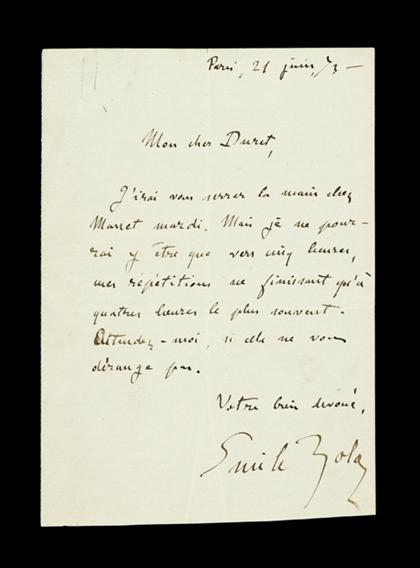 Paris, 21 juin, 73 –
Mon cher Duret,
J'irai vous serrer la main chez
Manet mardi. Mais je ne pour-
rai y être que vers cinq heures,
mes répétitions ne finissant qu'à
quatres heures le plus souvent.
Attendez-moi, si cela ne vous
dérange pas.
Votre bien dévoué,
Emile Zola